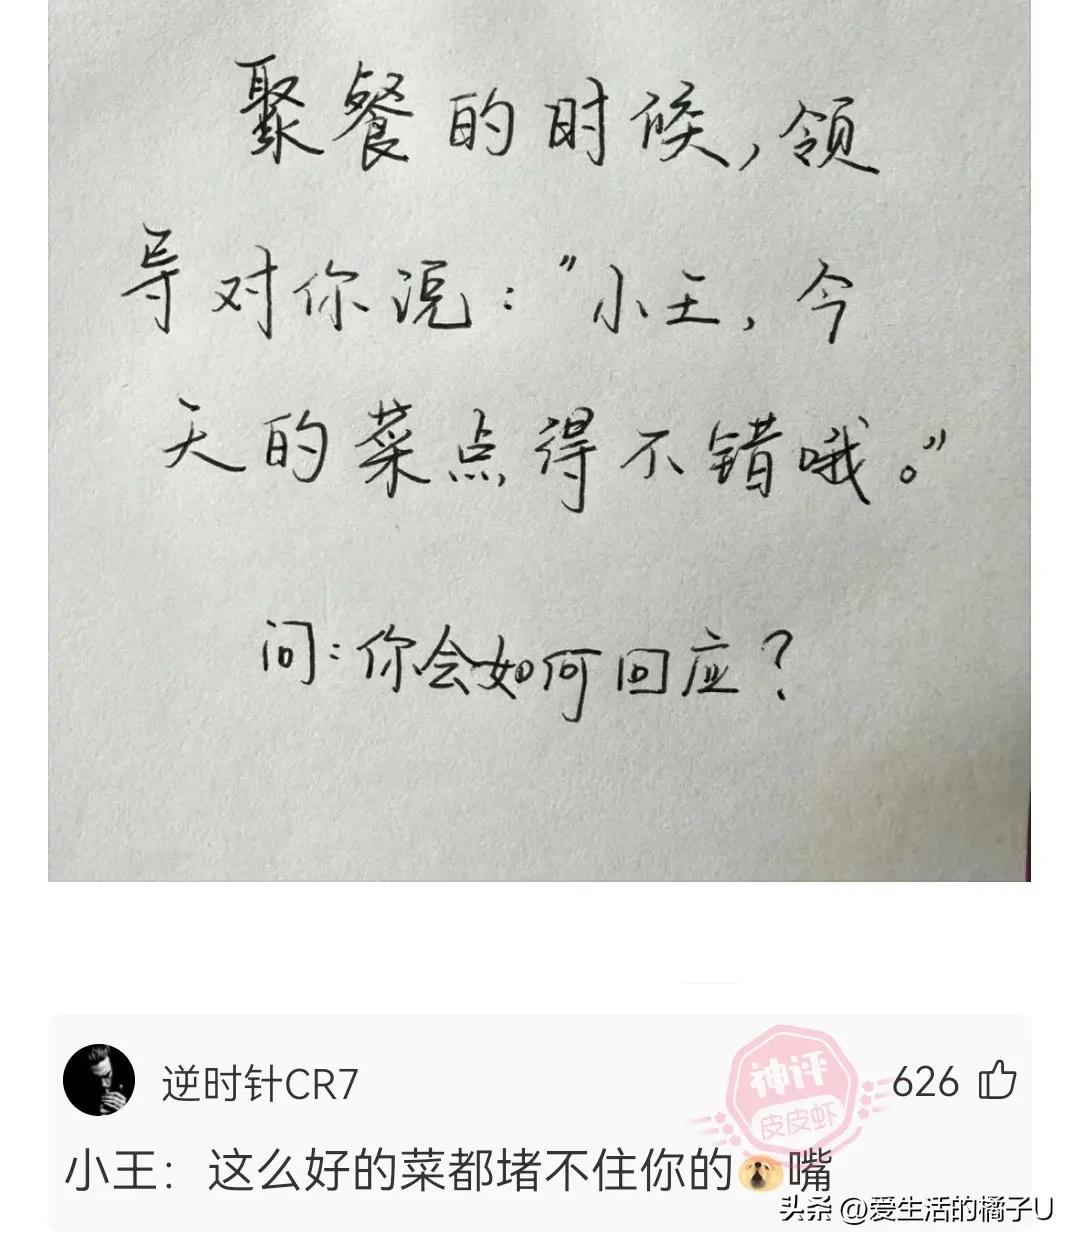 聚餐的时候,领
导对你说:"小王,今
天的菜点得不错哦。"
问:你会如何回应?
逆时针CR7
神评
皮皮虾
626
小王：这么好的菜都堵不住你的嘴
头条 @爱生活的橘子U